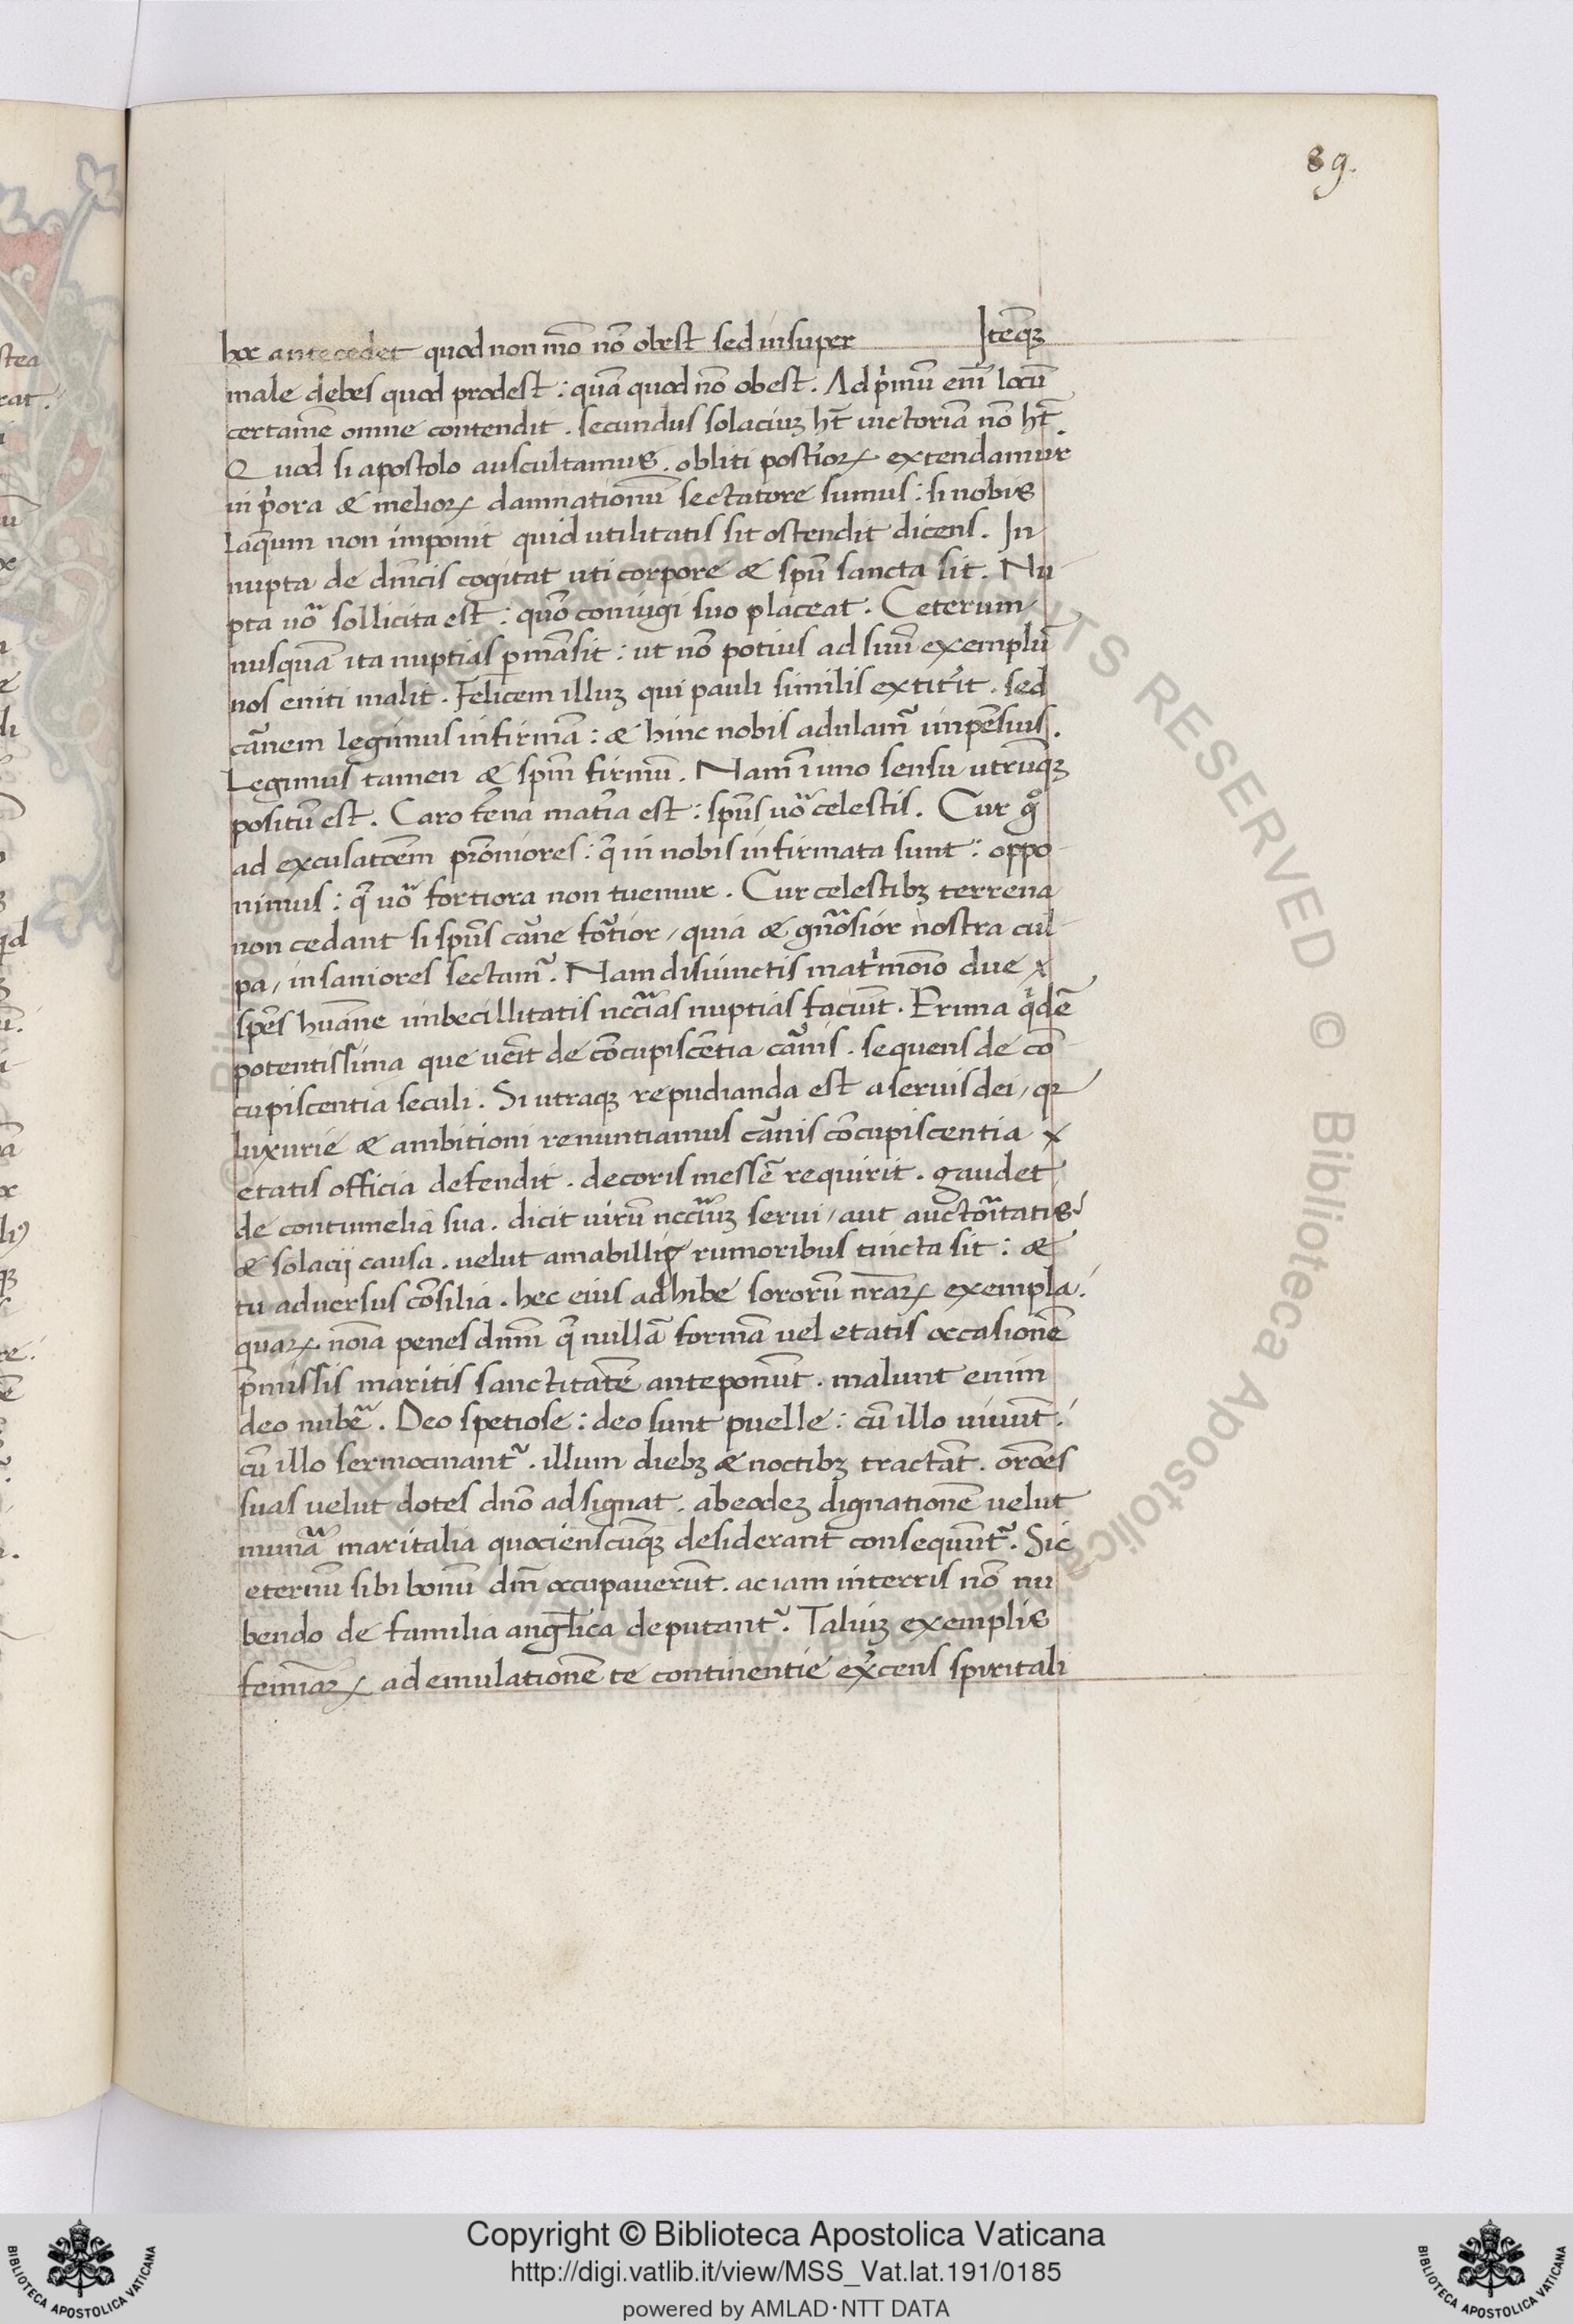 89.
hoc antecedet quod non mō nō obest sed insuper Iteq̄ꝫ
male debes quod prodest : quā quod nō obest . Ad p̄mū eni᷑ locū
certamē omne contendit . secundus solaciuꝫ ht̄ uictoriā nō ht̄ .
Quod si apostolo auscultamus . obliti post̾ioꝝ extendamur
in p̾ora & melioꝝ damnationū sectatore sumus : si nobis
laq̄um non imponit quid utilitatis sit ostendit dicens . In
nupta de diuīcis cogitat uti corpore & spū sancta sit . Nu
pta uō sollicita est : quō coniugi suo placeat . Ceterum
nusquā ita nuptias p̄māsit : ut nō potius ad suū exemplū
nos eniti malit . Felicem illuꝫ qui pauli similis extit̾it . sed
cānem legimus infirmā : & hinc nobis adulam̄ inpēsius .
Legimus tamen & spm̄ firmū . Nam ī uno sensu utrūqꝫ
positū est . Caro t̄rena mat̾ia est : sp̄us uō celestis . Cur g°
ad excusatōem prōniores : q̄ in nobis infirmata sunt : oppo
nimus : q̄ uō fortiora non tuemur . Cur celestibꝫ terrena
non cedant si sp̄us cāne fōtior / quia & gnōsior nostra cul
pa / insaniores sectam̄ . Nam disiunctis mat̾moīo due x
spēs huāne imbecillitatis nccīas nuptias faciūt . Prima q̇dē
potentissima que ueīt de cōcupiscētia cānis . sequens de cō
cupiscentia seculi . Si utraqꝫ repudianda est a seruis dei / qꝛ
luxurie & ambitioni renuntiamus cānis cōcupiscentia x
etatis officia defendit . decoris messē requirit . gaudet
de contumelia sua . dicit uirū nccīuꝫ serui / aut auctōitatis
& solacij causa . velut amabillis rumoribus tincta sit : &
tu aduersus cōsilia . hec eius adhibe sororū nr̄aꝝ exempla .
quaꝝ noīa penes dnm̄ q̄ nullā formā uel etatis occasionē
p̄missis maritis sanctitatē anteponūt . malunt enim
deo nubē . Deo spetiose : deo sunt puelle : cū illo uiuūt .
cū illo sermocinant᷑ . illum diebꝫ & noctibꝫ tractāt . orōes
suas uelut dotes dnō adsignat . ab eodeꝫ dignationē uelut
munā maritalia quocienscūqꝫ desiderant consequūt᷑ . Sic
eternū sibi bonū dm̄ occupauerūt . ac iam interris nō nu
bendo de familia anglica deputant᷑ . Taliuꝫ exemplis
feminaꝝ ad emulationē te continentie ex̾cens spiritali
Copyright © Biblioteca Apostolica Vaticana
http://digi.vatlib.it/view/MSS_Vat.lat.191/0185
powered by AMLAD·NTT DATA
BIBLIOTECA APOSTOLICA VATICANA
BIBLIOTECA APOSTOLICA VATICANA